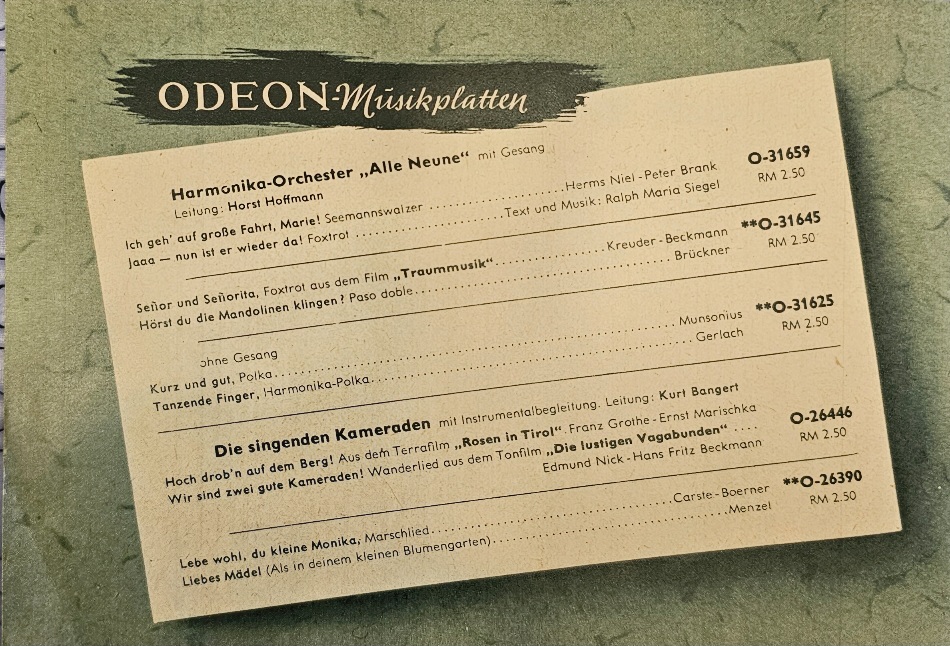 ODEON-Musikplatten
Harmonika-Orchester „Alle Neune“ mit Gesang
Leitung: Horst Hoffmann
O-31659
Ich geh' auf große Fahrt, Marie! Seemannswalzer ..................Herms Niel-Peter Brank RM 2.50
Jaaa — nun ist er wieder da! Foxtrot ......................Text und Musik: Ralph Maria Siegel
**O-31645
Señor und Señorita, Foxtrot aus dem Film „Traummusik“................Kreuder-Beckmann RM 2.50
Hörst du die Mandolinen klingen? Paso doble......................................Brückner
ohne Gesang
**O-31625
Kurz und gut, Polka............................................................Munsonius RM 2.50
Tanzende Finger, Harmonika-Polka................................................Gerlach
Die singenden Kameraden mit Instrumentalbegleitung. Leitung: Kurt Bangert
O-26446
Hoch drob'n auf dem Berg! Aus dem Terrafilm „Rosen in Tirol“.Franz Grothe-Ernst Marischka RM 2.50
Wir sind zwei gute Kameraden! Wanderlied aus dem Tonfilm „Die lustigen Vagabunden“ ....
Edmund Nick-Hans Fritz Beckmann
**O-26390
Lebe wohl, du kleine Monika, Marschlied....................................Carste-Boerner RM 2.50
Liebes Mädel (Als in deinem kleinen Blumengarten)....................................Menzel